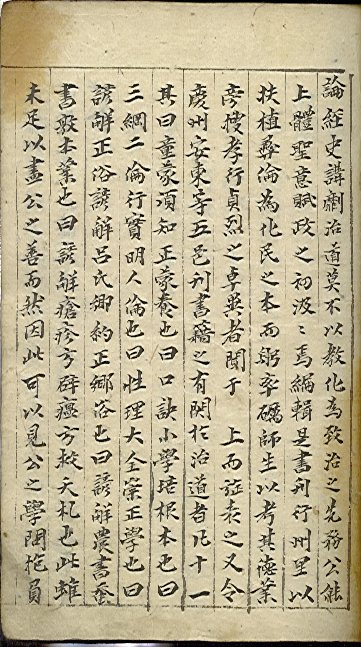 論經史講劘治道莫不以敎化爲致治之先務公能
上體聖意賦政之初汲〻焉編輯是書刊行州里以
扶植彝倫為化民之本而躬率礪師生以考其德業
旁搜孝行貞烈之卓異者聞于 上而旌表之又令
慶州安東等五邑刊書籍之有関於治道者凡十一
其曰童蒙須知正蒙養也曰口訣小學培根本也曰
三綱二倫行實明人倫也曰性理大全崇正學也曰
諺觧正俗諺觧呂氏鄉約正鄉俗也曰諺觧農書蚕
書敦本業也曰諺觧瘡疹方辟瘟方救夭札也此雖
未足以盡公之善而然因此可以見公之學問抱負